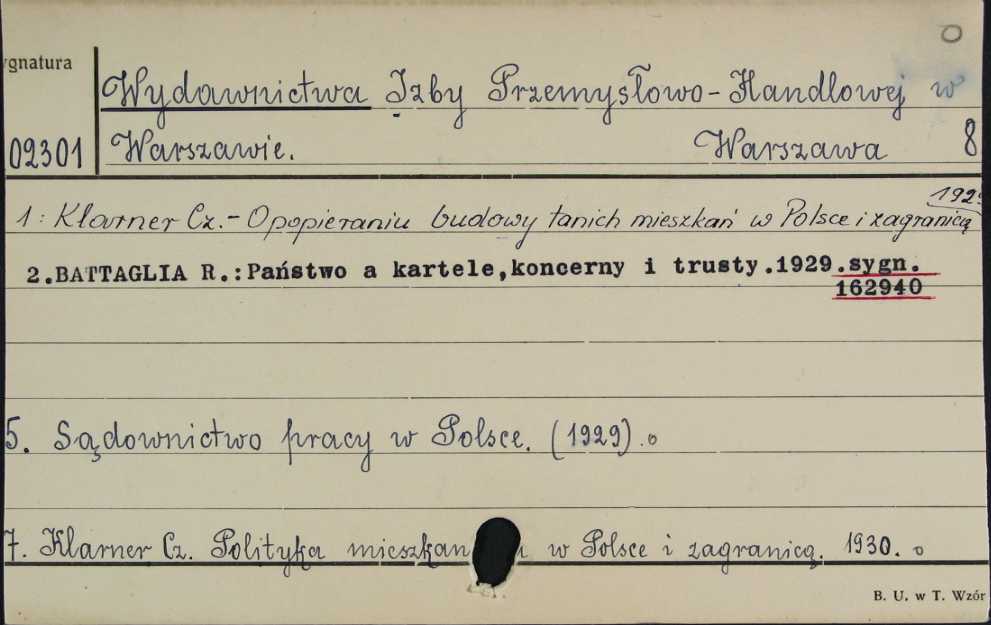 ygnatura
Wydawnictwa Izby Przemysłowo-Handlowej w
02301 Warszawie. Warszawa 8
1: Klarner Cz.- O popieraniu budowy tanich mieszkań w Polsce i zagranicą 192
2.BATTAGLIA R.:Państwo a kartele,koncerny i trusty.1929.sygn.
162940
5. Sądownictwo pracy w Polsce. (1929).
7. Klarner Cz. Polityka w Polsce i zagranicą. 1930.
B. U. w T. Wzór